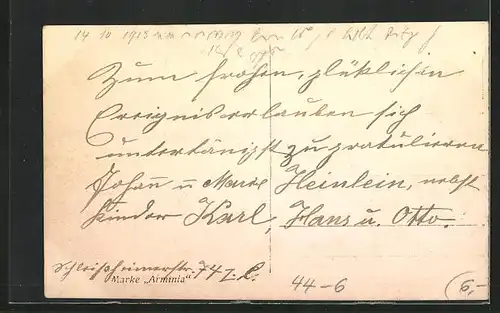 14 10 1913
Zum frohen, glüklichen
Ereignis erlauben sich
untertänigst zu gratulieren
Johann u Marie Heinlein, nebst
Kinder Karl, Hans u. Otto.
Schleisheimerstr. 74
Marke „Arminia"
44-6
6,-